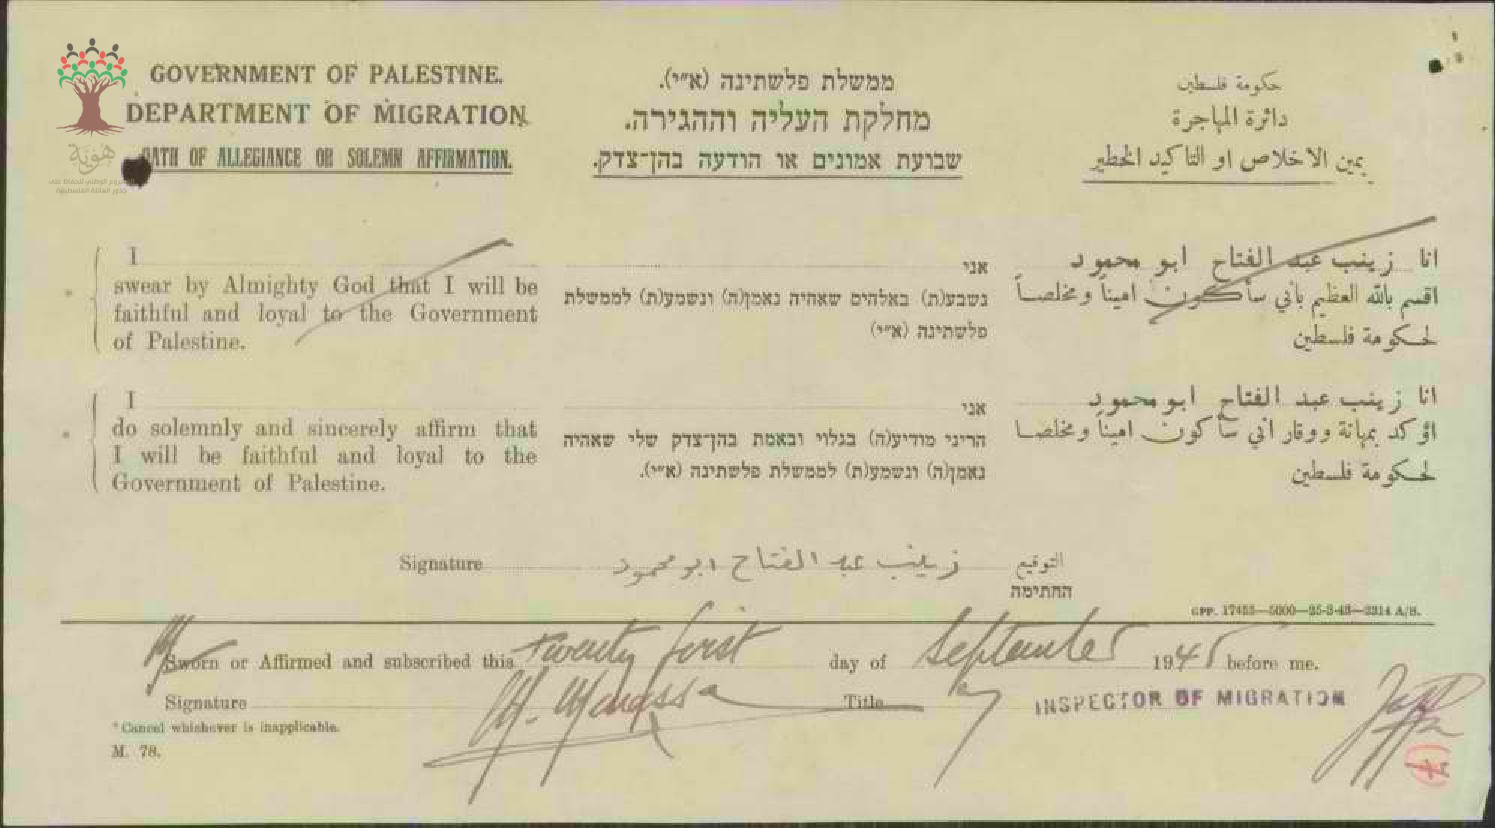 GOVERNMENT OF PALESTINE.
DEPARTMENT OF MIGRATION
OATH OF ALLEGIANCE OR SOLEMN AFFIRMATION.
ממשלת פלשתינה (א״י).
מחלקת העליה וההגירה.
שבועת אמונים או הודעה בהן־צדק.
حكومة فلسطين
دائرة المهاجرة
يمين الاخلاص او التاكيد الخطير
هوية
I
swear by Almighty God that I will be
faithful and loyal to the Government
of Palestine.
אני
נשבע(ת) באלהים שאהיה נאמן(ה) ונשמע(ת) לממשלת
פלשתינה (א״י)
انا زينب عبد الفتاح ابو محمود
اقسم بالله العظيم بأني سأكون اميناً ومخلصاً
لحكومة فلسطين
I
do solemnly and sincerely affirm that
I will be faithful and loyal to the
Government of Palestine.
אני
הריני מודיע(ה) בגלוי ובאמת בהן־צדק שלי שאהיה
נאמן(ה) ונשמע(ת) לממשלת פלשתינה (א״י).
انا زينب عبد الفتاح ابو محمود
اؤكد بمهانة ووقار اني سأكون اميناً ومخلصا
لحكومة فلسطين
Signature زينب عبد الفتاح ابو محمود التوقيع
החתימה
GPP. 17455—5000—25-3-43—2314 A/B.
Sworn or Affirmed and subscribed this Twenty first day of September 1945 before me.
Signature Title INSPECTOR OF MIGRATION
* Cancel whichever is inapplicable.
M. 78.